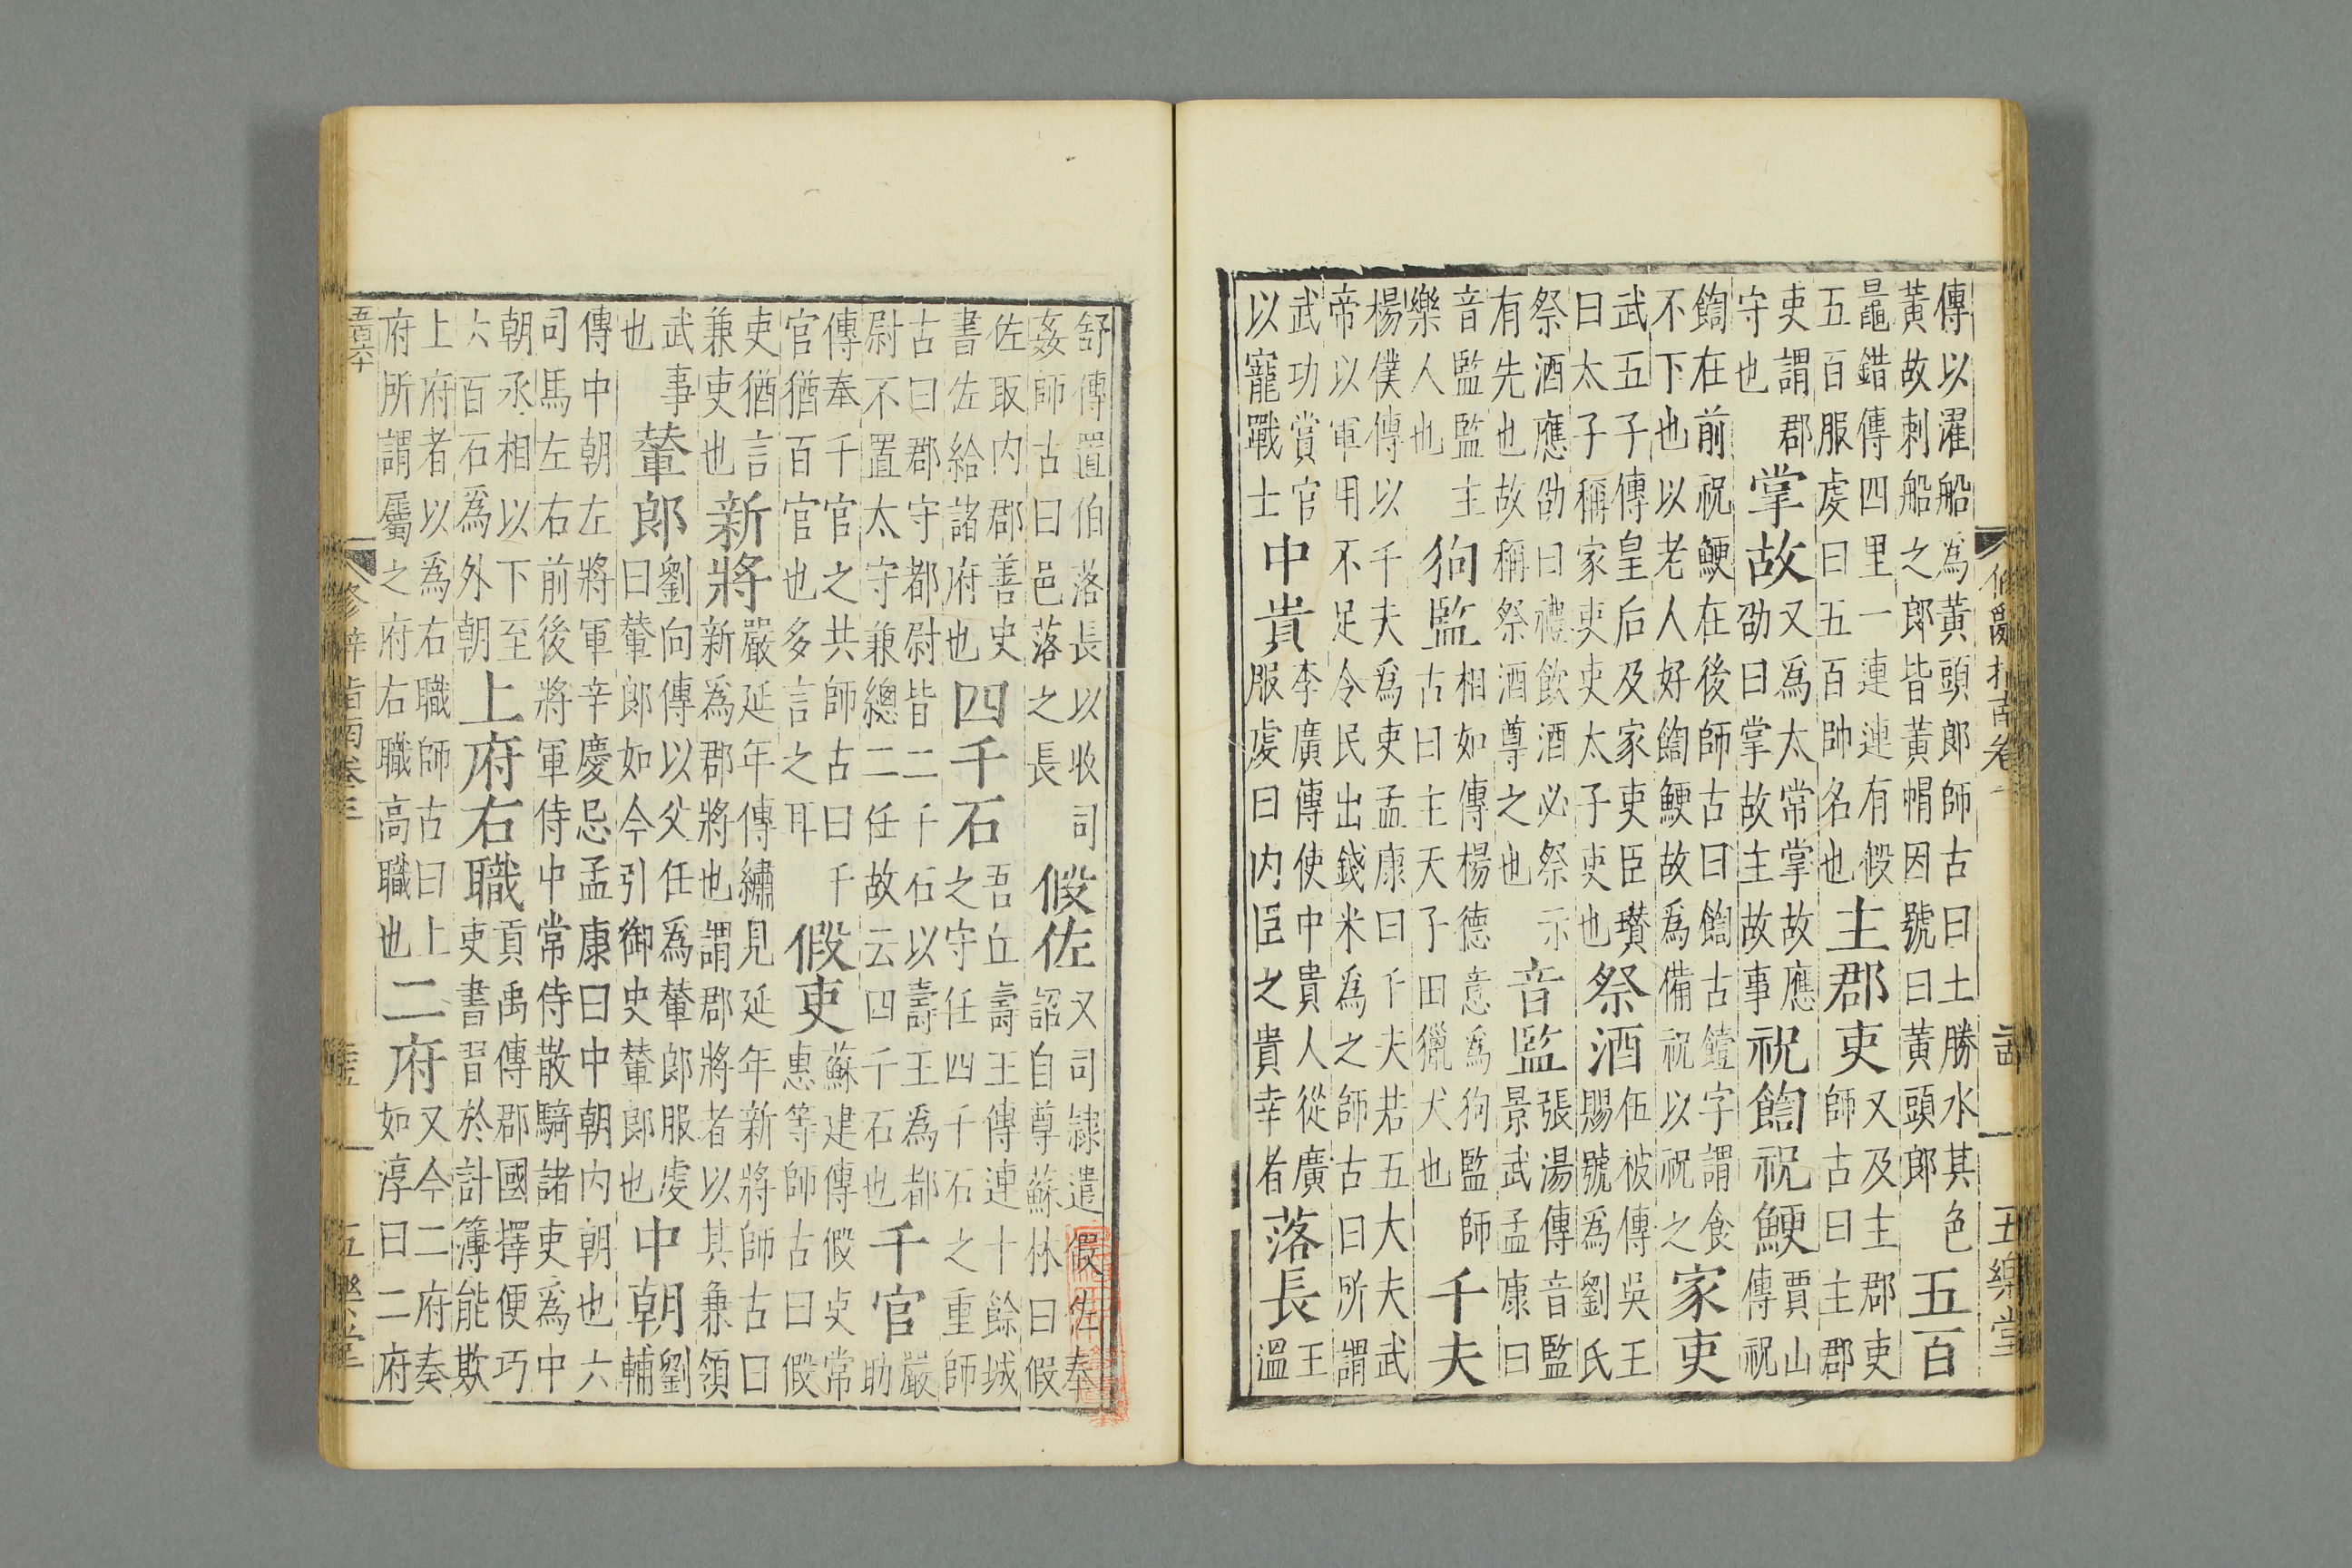 傳以濯船爲黃頭郎師古曰土勝水其色
黃故刺船之郎皆黃帽因號曰黃頭郎
五百
鼂錯傳四里一連連有假
五百服虔曰五百帥名也
主郡吏
又及主郡吏
師古曰主郡
吏謂郡
守也
掌故
又爲太常掌故應
劭曰掌故主故事
祝䭇祝鯁
賈山
傳祝
䭇在前祝鯁在後師古曰䭇古饐字謂食
不下也以老人好䭇鯁故爲備祝以祝之
家吏
武五子傳皇后及家吏臣瓚
曰太子稱家吏吏太子吏也
祭酒
伍被傳吳王
賜號爲劉氏
祭酒應劭曰禮飲酒必祭示
有先也故稱祭酒尊之也
音監
張湯傳音監
景武孟康曰
音監監主
樂人也
狗監
相如傳楊德意爲狗監師
古曰主天子田獵犬也
千夫
楊僕傳以千夫爲吏孟康曰千夫若五大夫武
帝以軍用不足令民出錢米爲之師古曰所謂
武功賞官
以寵戰士
中貴
李廣傳使中貴人從廣
服虔曰内臣之貴幸者
落長
王
溫
舒傳置伯落長以收司
姦師古曰邑落之長
假佐
又司隸遣假佐奉
詔自尊蘇林曰假
佐取内郡善史
書佐給諸府也
四千石
吾丘壽王傳連十餘城
之守任四千石之重師
古曰郡守都尉皆二千石以壽王爲都
尉不置太守兼總二任故云四千石也
千官
嚴
助
傳奉千官之共師古曰千
官猶百官也多言之耳
假吏
蘇建傳假吏常
惠等師古曰假
吏猶言
兼吏也
新將
嚴延年傳繡見延年新將師古曰
新爲郡將也謂郡將者以其兼領
武事
也
輦郎
劉向傳以父任爲輦郎服虔
曰輦郎如今引御史輦郎也
中朝
劉
輔
傳中朝左將軍辛慶忌孟康曰中朝内朝也六
司馬左右前後將軍侍中常侍散騎諸吏爲中
朝丞相以下至
六百石爲外朝
上府右職
貢禹傳郡國擇便巧
吏書習於計簿能欺
上府者以爲右職師古曰上
府所謂屬之府右職高職也
二府
又今二府奏
如淳曰二府
修辭指南卷三
五樂堂